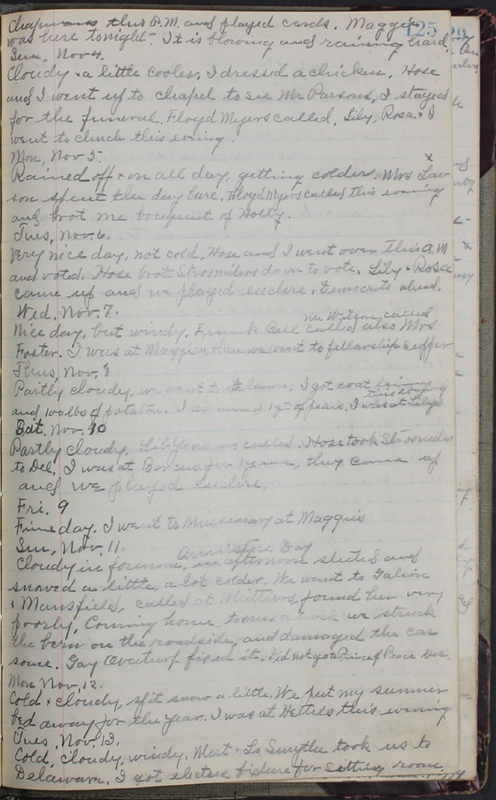 Chapmans this P.M. and played cards. Maggie 125
was here tonight - It is blowing and raining hard.
Sun, Nov 4.
Cloudy & a little cooler, I dressed a chicken, Hose
and I went up to chapel to see Mr Parsons, I stayed
for the funeral. Floyd Myers called, Lily, Rosa & I
went to church this evening.
Mon, Nov 5.
Rained off & on all day, getting colder. Mrs Law-
son spent the day here, Floyd Myers called this evening
and brot me bouquet of Holly.
Tues, Nov. 6.
Very nice day, not cold, Hose and I went over this A.M
and voted. Hose brot Strosniders down to vote. Lily & Rosa
came up and we played euchre, democrats ahead.
Wed, Nov. 7.
Mr Watson called
Nice day, but windy. Frank Bell called also Mrs
Foster. I was at Maggies, then we went to fellowship supper
Thus, Nov, 8
Partly cloudy, we went to I got coat
this evening
and 100 lbs of potatoes. I 1 qt of pears, I was at Lilys
Sat. Nov, 10
Partly Cloudy, called. Hose took Strosniders
to Del, I was at for they came up
and we played euchre,
Fri. 9
Fine day, I went to Missionary at Maggies
Sun, Nov, 11. Armistice Day
Cloudy in forenoon, in afternoon sleeted and
snowed a little, a lot colder. We went to Galion
& Mansfield, called at Whittiers, found him very
poorly, Coming home to miss a truck we struck
the berm on the roadside, and damaged the car
some. Gay Overturf fixed it. Did not go to Prince of Peace Dec.
Mon Nov, 12.
Cold & cloudy, spit snow a little. We put my summer
bed away for the year. I was at Hetties this evening
Tues, Nov. 13.
Cold, cloudy, windy. Mert & Ls Smythe took us to
Delaware, I got electric fixture for sitting room